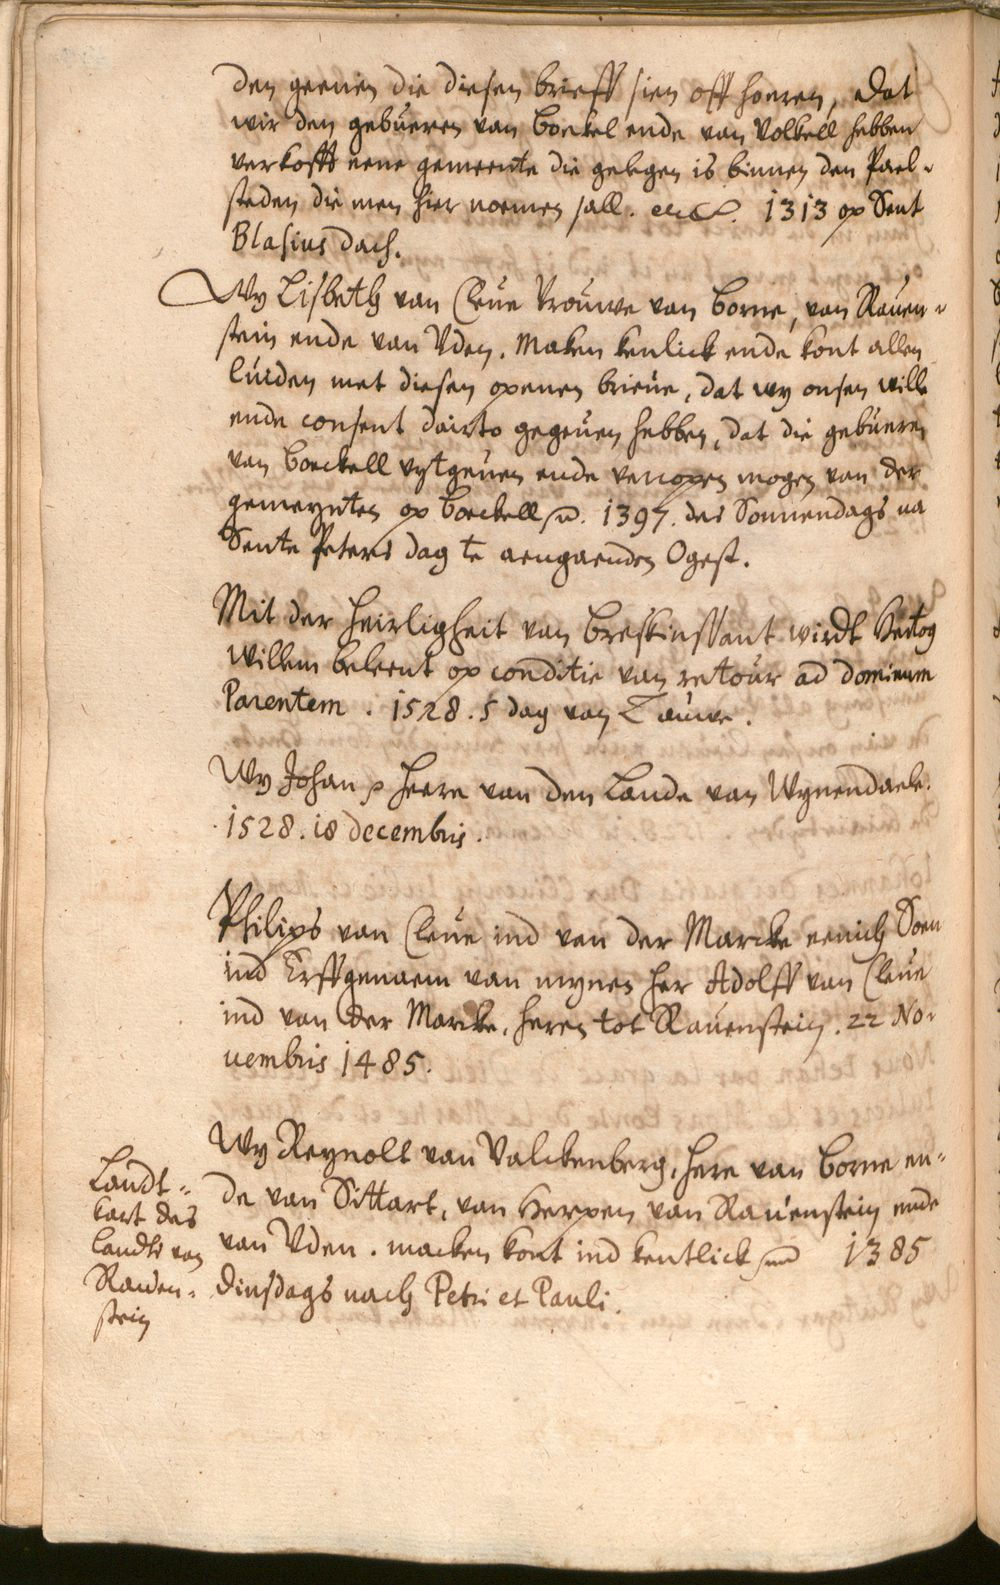 den geenen die diesen brieff sien off hoeren, dat
wir den gebueren van Boekel ende van Volkell hebben
verkofft eene gemeente die gelegen is binnen den Pael-
steden die men hier noemen sall. 1313 op Sent
Blasius dach.
Wy Lisbeth van Cleue Vrouwe van Borne, van Rauen-
stein ende van Vden. Maken kenlick ende kont allen
luiden met diesen openen brieue, dat wy onsen wille
ende consent dairto gegeuen hebben, dat die gebueren
van Boeckell vytgeuen ende vercopen mogen van der
gemeynten op Boeckell. 1397. des Sonnendags na
Sente Peters dag te aengaenden Ogest.
Mit der heirligheit van Breskinssant wirdt Hertog
Willem beleent op conditie van retour ad dominum
Parentem. 1528. 5 dag van
Wy Johan heere van den Lande van Wynendaele.
1528. 18 decembris.
Philips van Cleue ind van der Marcke eenich Soen
ind Erffgenaem van mynen her Adolff van Cleue
ind van der Marcke, heren tot Rauenstein. 22 No-
uembris 1485.
Wy Reynolt van Valckenberg, here van Borne en-
de van Sittart, van Herpen van Rauenstein ende
van Vden. macken kont ind kentlick 1385
dinsdags nach Petri et Pauli.
Landt-
kart des
landts van
Rauen-
stein